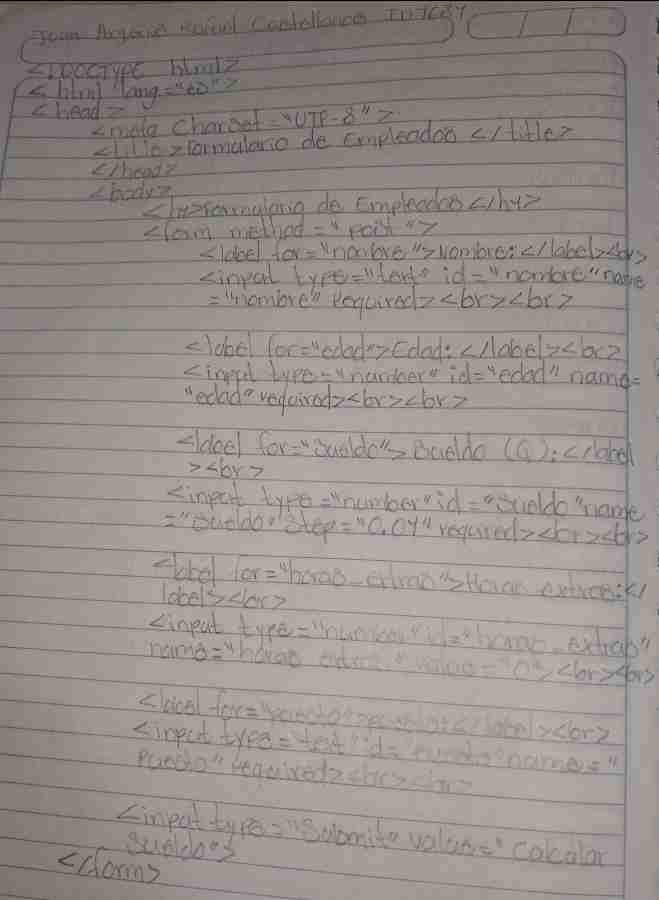 Juan Rafael Castellanos
<!DOCTYPE html>
<html lang="es">
<head>
<meta Charset="UTF-8">
<title>Formulario de Empleados </title>
</head>
<body>
<h1>Formulario de Empleados</h1>
<form method="post">
<label for="nombre">Nombre:</label><br>
<input type="text" id="nombre" name
="nombre" required><br><br>
<label for="edad">Edad:</label><br>
<input type="number" id="edad" name=
"edad" required><br><br>
<label for="Sueldo">Sueldo (Q):</label
><br>
<input type="number" id="Sueldo" name
="Sueldo" Step="0.01" required><br><br>
<label for="horas_extras">Horas extras:</
label><br>
<input type="number" id="horas_extras"
name="horas extras" value="0"><br><br>
<label for="puesto">puesto:</label><br>
<input type="text" id="puesto" name="
Puesto" required><br><br>
<input type="Submit" value="Calcular
Sueldo">
</form>